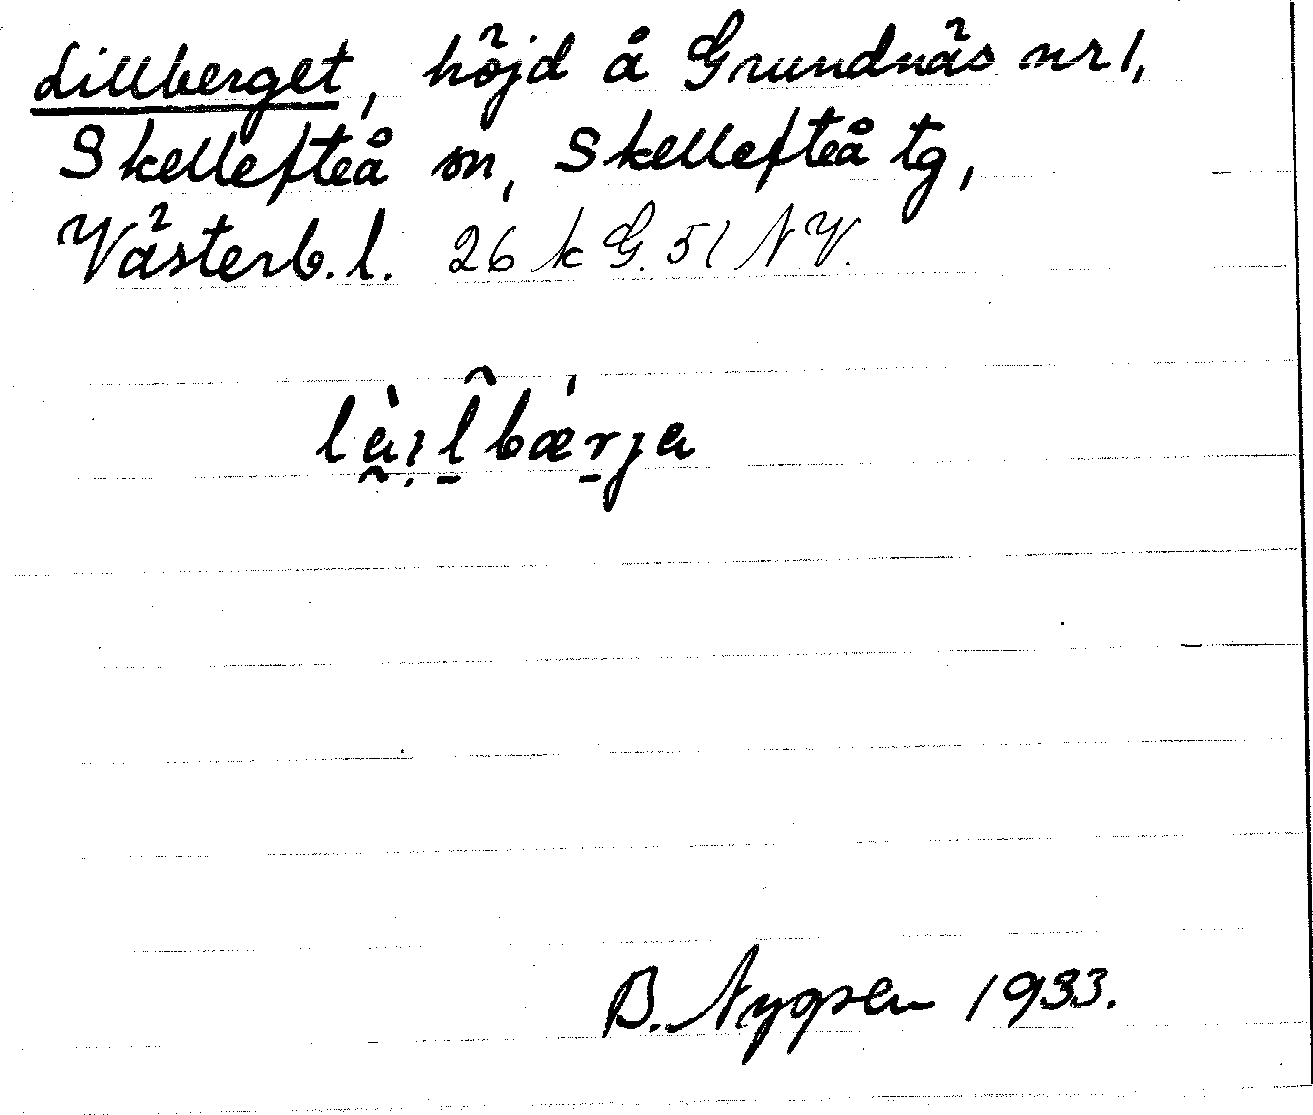 Lillberget, höjd å Grundnäs nr 1,
Skellefteå sn, Skellefteå tg,
Västerb. l. 26 k G. 51 NV.
B. 1933.